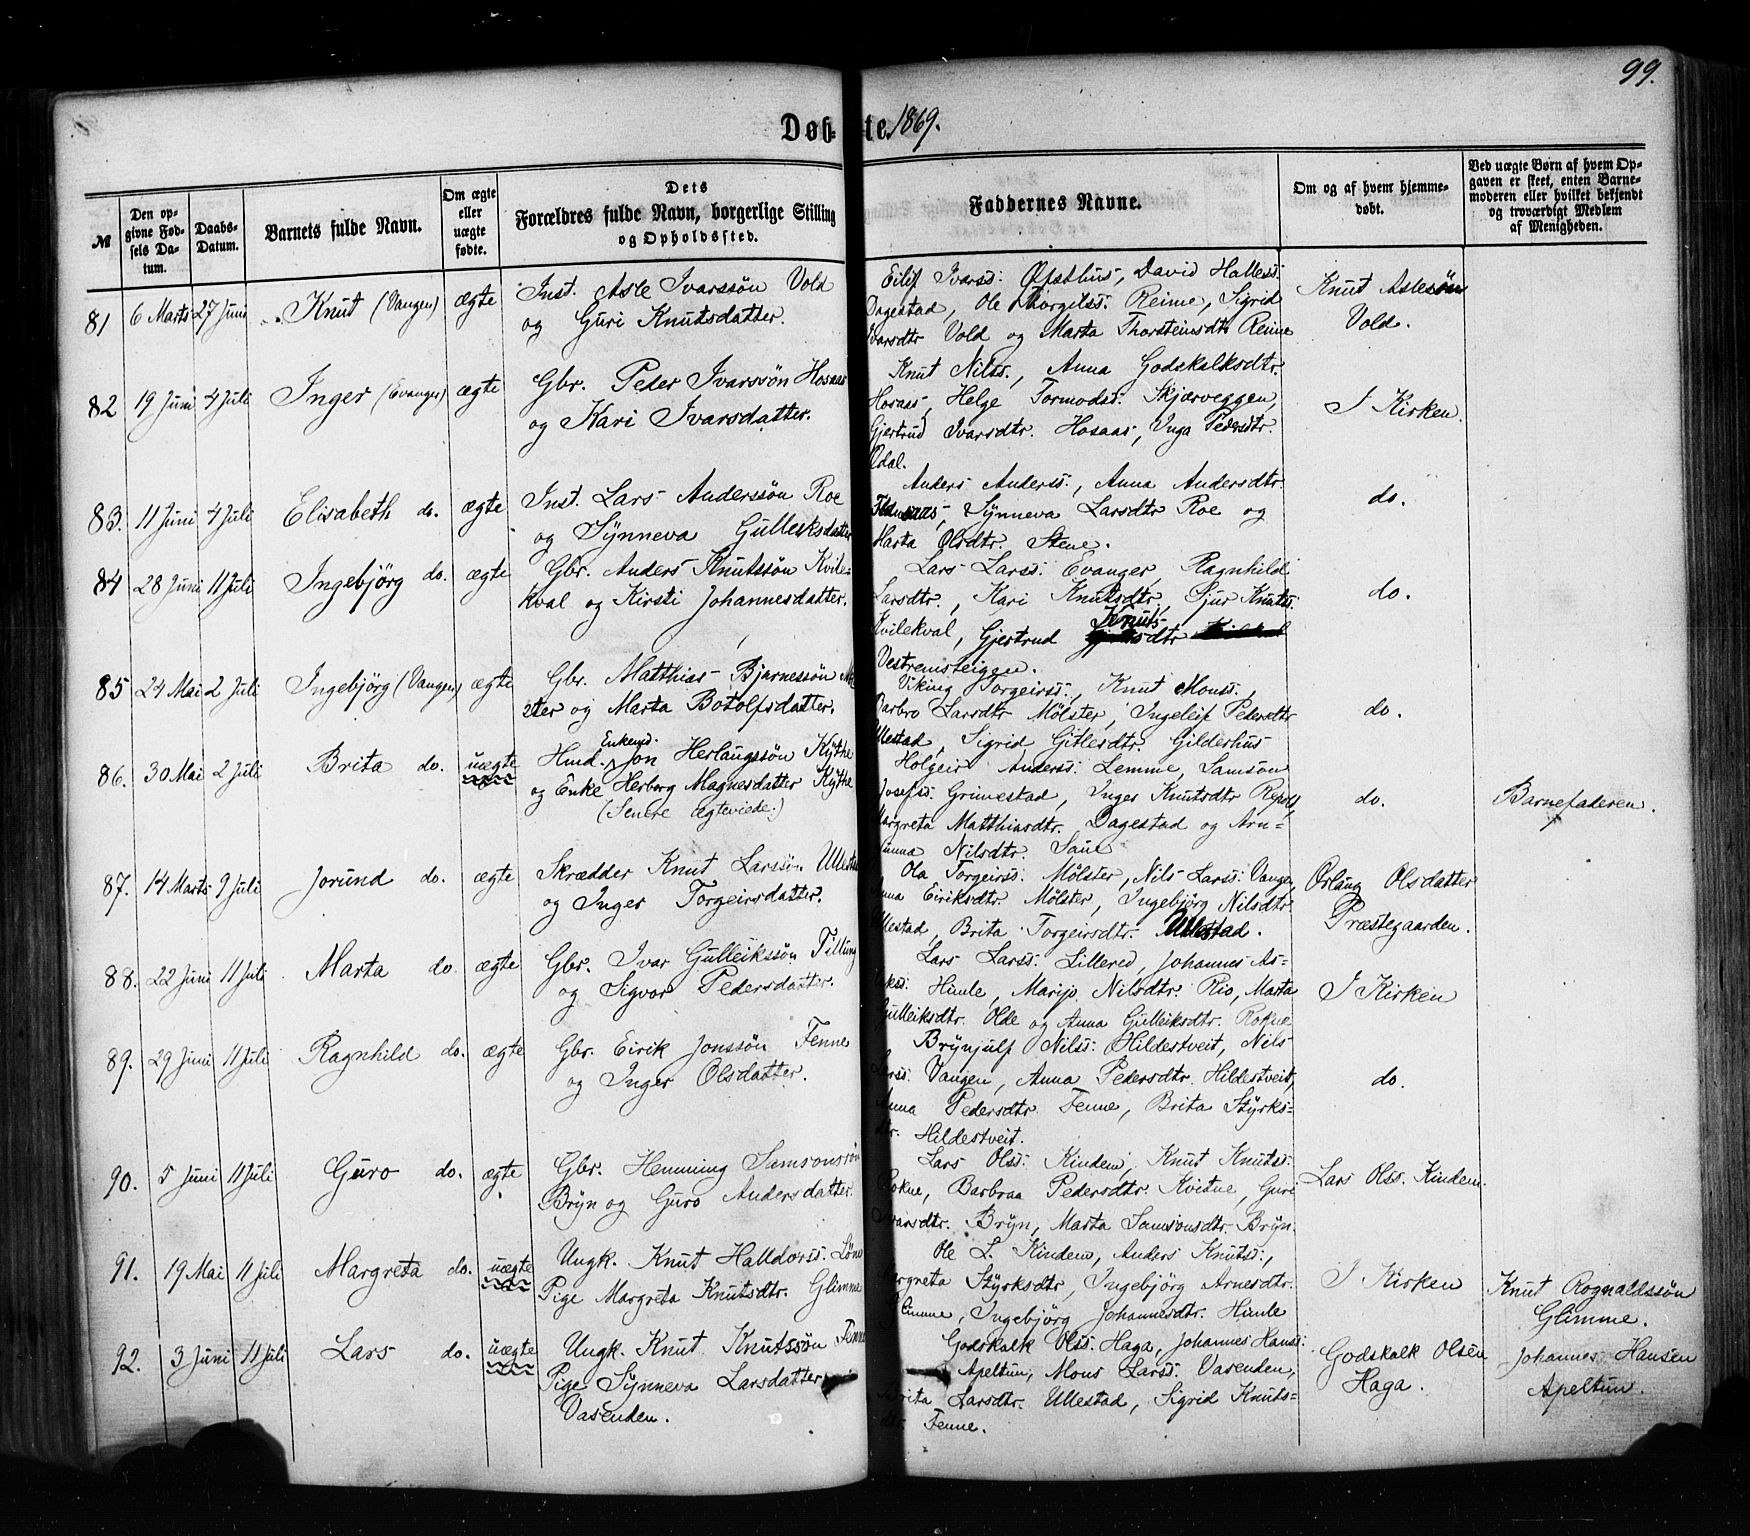 99.
Døbte 1869.
№
Den opgivne Fødsels Datum.
Daabs-Datum.
Barnets fulde Navn.
Om ægte eller uægte fødte.
Dets Forældres fulde Navn, borgerlige Stilling og Opholdssted.
Faddernes Navne.
Om og af hvem hjemmedøbt.
Ved uægte Børn af hvem Opgaven er skeet, enten Barnemoderen eller hvilket bekjendt og troværdigt Medlem af Menigheden.
81 6 Marts 27 Juni Knut (Vangen) ægte
Inst. Asle Ivarssön Vold
og Guri Knutsdatter.
Eilif Ivarss: Öfsthus, David Halless:
Dagestad, Ole Thorgilss: Reime, Sigrid
Ivarsdtr Vold og Marta Thorsteinsdtr Reime
Knut Aslesön
Vold.
82 19 Juni 4 Juli Inger (Evanger) ægte
Gbr. Peder Ivarssön Hosaas
og Kari Ivarsdatter.
Knut Nilss., Anna Godskalksdtr.
Hosaas, Helge Tormodss: Skjærveggen,
Gjertrud Ivarsdtr. Hosaas, Inga Pedersdtr.
Ødal.
I Kirken
83. 11 Juni 4 Juli Elisabeth do. ægte
Inst. Lars Anderssön Roe
og Synneva Gulleiksdatter
Anders Anderss., Anna Andersdtr.
Synneva Larsdtr Roe og
Marta Olsdtr. Stene.
do.
84 28 Juni 11 Juli Ingebjörg do. ægte
Gbr. Anders Knutssön Kvile-
kval og Kirsti Johannesdatter.
Lars Larss: Evanger, Ragnhild
Larsdtr., Kari Knutsdtr, Sjur Knutss:
Kvilekval, Gjertrud Knuts-
dtr
Vestremsteigen.
do.
85 24 Mai 2 Juli Ingebjörg (Vangen) ægte
Gbr. Matthias Bjarnessön Möl-
ster og Marta Botolfsdatter.
Viking Torgeirss., Knut Monss.,
Barbro Larsdtr Mölster, Ingeleif Pedersdtr
Ullestad, Sigrid Gitlesdtr. Gilderhus
do.
86. 30 Mai 2 Juli Brita do. uægte
Enkemd.
Hmd. Jon Herlaugssön Kythe
og Enke Herborg Magnesdatter Kythe
(Senere ægteviede.)
Holgeir Anderss: Lemme, Samson
Josefss. Grimestad, Inger Knutsdtr Repål,
Margreta Matthiasdtr. Dagestad og Arn=
gunna Nilsdtr. Saue
do.
Barnefaderen.
87. 14 Marts 9 Juli Jorund do. ægte
Skrædder Knut Larssön Ullestad
og Inger Torgeirsdatter.
Ola Torgeirss: Mölster, Nils Larss: Vangen,
Anna Eiriksdtr Mölster, Ingebjörg Nilsdtr
Ullestad, Brita Torgeirsdtr. Ullestad.
Orlaug Olsdatter
Præstegaarden.
88. 22 Juni 11 Juli Marta do ægte
Gbr. Ivar Gulleikssön Tillung
og Sigvor Pedersdatter.
Lars Larss: Lillered, Johannes As-
Himle, Marjo Nilsdtr. Rio, Marta
Gulleiksdtr. Olde og Anna Gulleiksdtr. Rokne
I Kirken
89. 29 Juni 11 Juli Ragnhild do. ægte
Gbr. Eirik Jonssön Fenne
og Inger Olsdatter.
Brynjulf Nilss: Hildestveit, Nils
Larss: Vangen, Anna Pedersdtr. Hildestveit,
Anna Pedersdtr. Fenne, Brita Styrks=
dtr. Hildestveit.
do.
90. 5 Juni 11 Juli Guro do. ægte
Gbr. Hemming Samsonssön
Bryn og Guro Andersdatter.
Lars Olss: Kindem, Knut Knutss:
Rokne, Barbraa Pedersdtr. Kvitne, Guri
Ivarsdtr. Bryn, Marta Samsonsdtr. Bryn.
Lars Olss. Kindem.
91. 19 Mai 11 Juli Margreta do. uægte
Ungk. Knut Halldorss. Löne
Pige Margreta Knutsdtr. Glimme
Ole L. Kindem, Anders Knutss:,
Margreta Styrksdtr, Ingebjörg Arnesdtr.
Glimme, Ingebjörg Johannesdtr. Himle
I Kirken
Knut Rognaldssön
Glimme.
92. 3 Juni 11 Juli Lars do. uægte
Ungk. Knut Knutssön Fenne
Pige Synneva Larsdatter
Vasenden.
Godskalk Olss. Haga, Johannes Hanss:
Apeltun, Mons Larss: Vasenden,
Brita Larsdtr. Ullestad, Sigrid Knuts=
dtr. Fenne.
Godskalk Olsen
Haga.
Johannes Hansen
Apeltun.